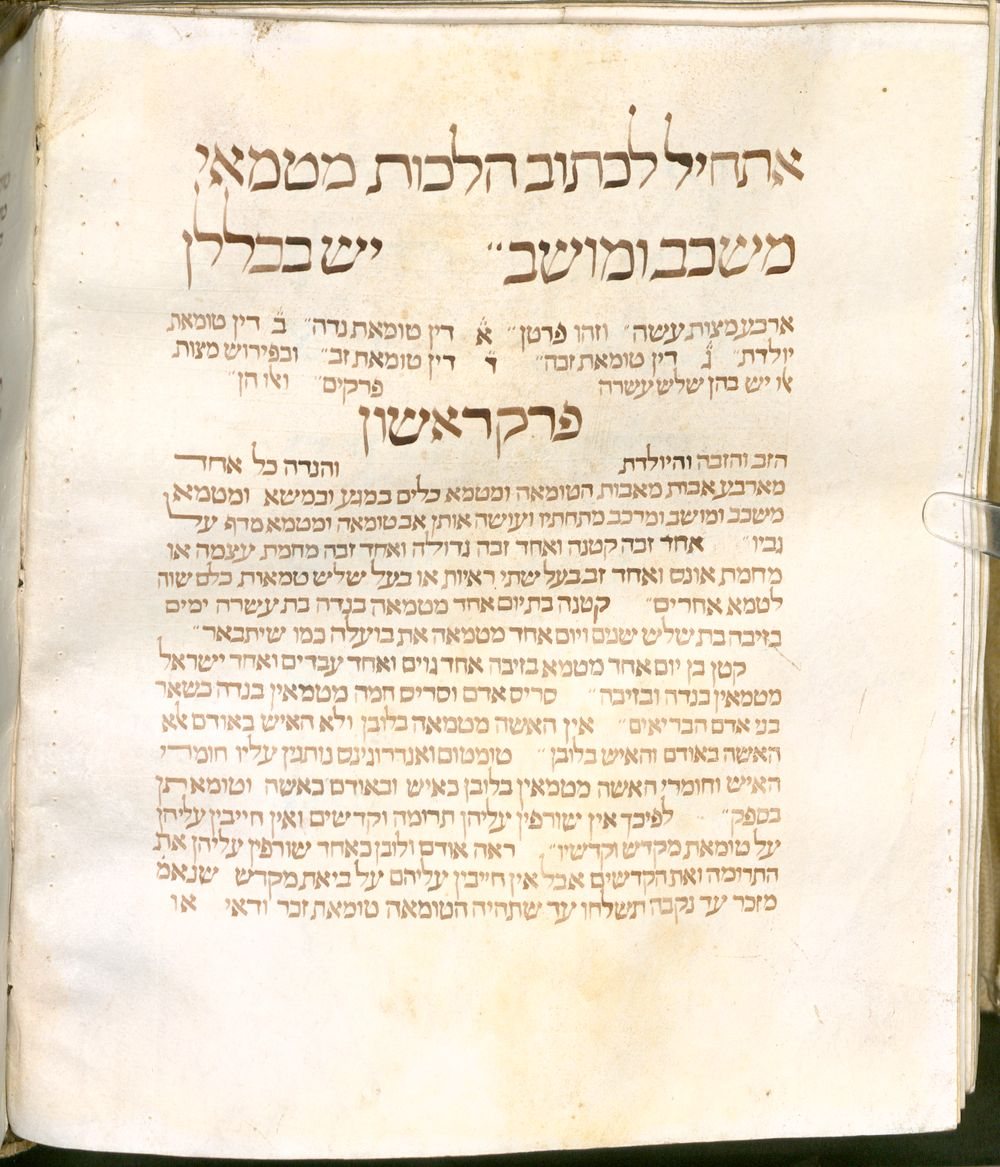 אתחיל לכתוב הלכות מטמאי
משכב ומושב״ יש בכללן
ארבע מצות עשה״ וזהו פרטן״ א דין טומאת נדה״ ב דין טומאת
יולדת״ ג דין טומאת זבה״ ד דין טומאת זב״ ובפירוש מצות
או יש בהן שלש עשרה פרקים״ ואו הן״
פרק ראשון
הזב והזבה והיולדת והנדה כל אחד
מארבע אבות מאבות הטומאה ומטמא כלים במגע ובמשא ומטמא
משכב ומושב ומרכב מתחתיו ועושה אותן אב טומאה ומטמא מדף על
גביו״ אחד זבה קטנה ואחד זבה גדולה ואחד זבה מחמת עצמה או
מחמת אונס ואחד זב בעל שתי ראיות או בעל שלש טמאות כלם שוה
לטמא אחרים״ קטנה בת יום אחד מטמאה בנדה בת עשרה ימים
בזיבה בת שלש שנים ויום אחד מטמאה את בועלה כמו שיתבאר״
קטן בן יום אחד מטמא בזיבה אחד גוים ואחד עבדים ואחד ישראל
מטמאין בנדה ובזיבה״ סריס אדם וסריס חמה מטמאין בנדה כשאר
בני אדם הבריאים״ אין האשה מטמאה בלובן ולא האיש באודם אלא
האשה באודם והאיש בלובן״ טומטום ואנדרוגינס נותנין עליו חומרי
האיש וחומרי האשה מטמאין בלובן כאיש ובאודם כאשה וטומאתן
בספק״ לפיכך אין שורפין עליהן תרומה וקדשים ואין חייבין עליהן
על טומאת מקדש וקדשיו״ ראה אודם ולובן כאחד שורפין עליהן את
התרומה ואת הקדשים אבל אין חייבין עליהם על ביאת מקדש שנאמ
מזכר עד נקבה תשלחו עד שתהיה הטומאה טומאת זכר ודאי או